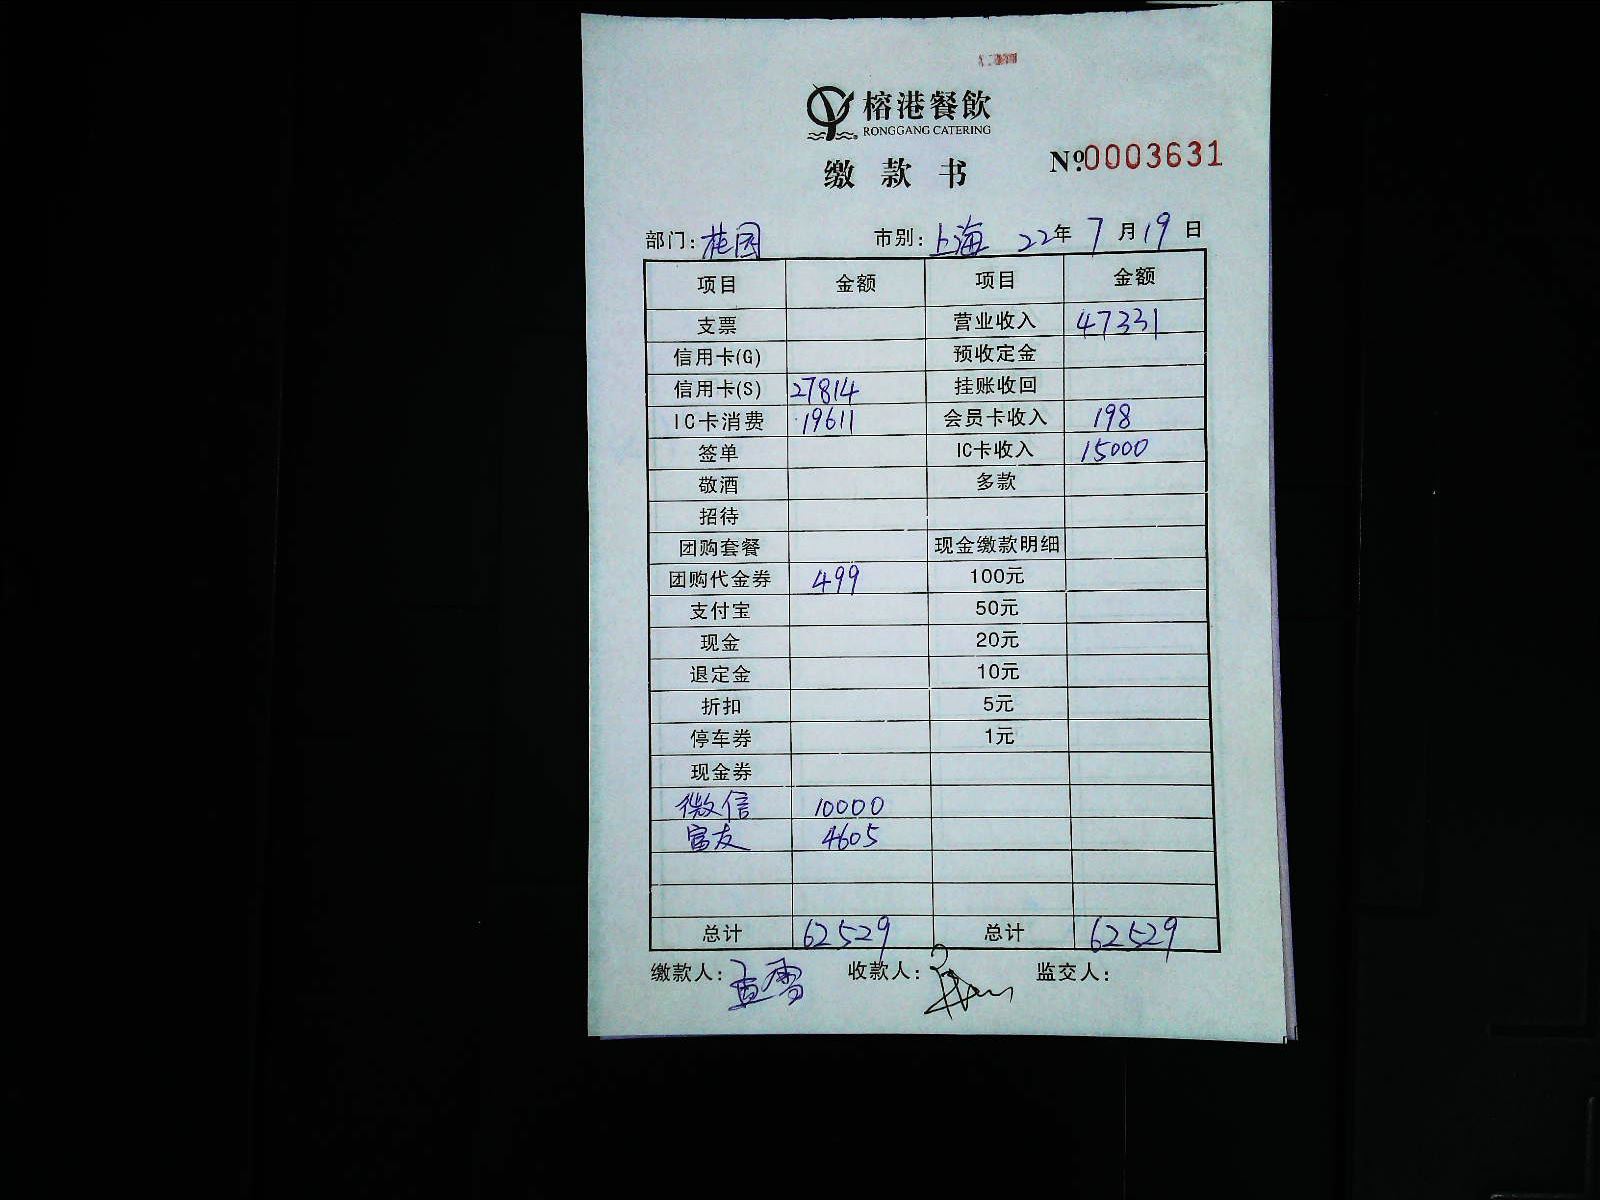 榕港餐飲
RONGGANG CATERING
缴款书
№0003631
部门:桂园 市别:上海 22年7月19日
项目 金额 项目 金额
支票 营业收入 47331
信用卡(G) 预收定金
信用卡(S) 27814 挂账收回
IC卡消费 19611 会员卡收入 198
签单 IC卡收入 15000
敬酒 多款
招待
团购套餐 现金缴款明细
团购代金券 499 100元
支付宝 50元
现金 20元
退定金 10元
折扣 5元
停车券 1元
现金券
微信 10000
富友 4605
总计 62529 总计 62529
缴款人: 收款人: 监交人: